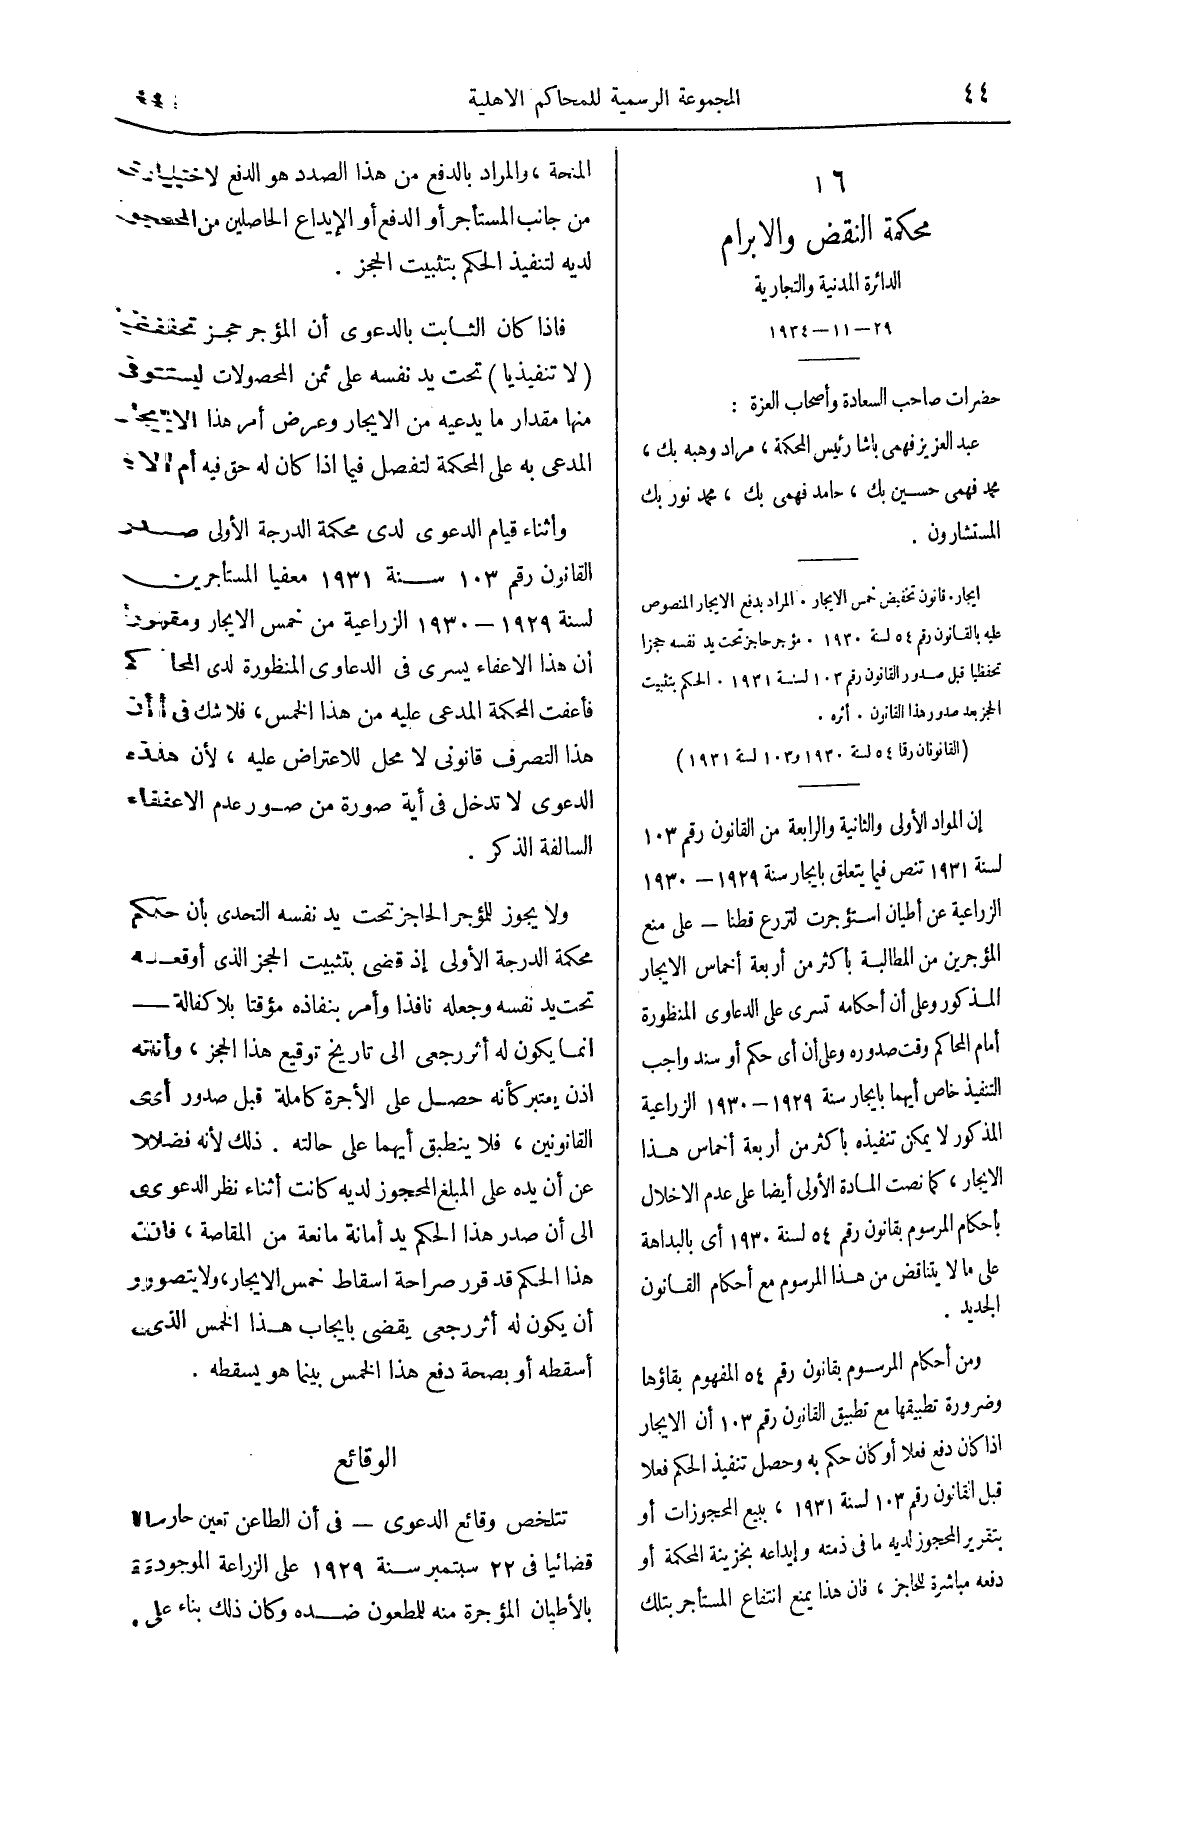 ٤٤
المجموعة الرسمية للمحاكم الاهلية
٤٤
١٦
محكمة النقض والابرام
الدائرة المدنية والتجارية
٢٩—١١—١٩٣٤
حضرات صاحب السعادة وأصحاب العزة :
عبد العزيز فهمى باشا رئيس المحكمة ، مراد وهبه بك ،
محمد فهمى حسين بك ، حامد فهمى بك ، محمد نور بك
المستشارون .
ايجار . قانون تخفيض خمس الايجار . المراد بدفع الايجار المنصوص
عليه بالقانون رقم ٥٤ لسنة ١٩٣٠ . مؤجر حاجز تحت يد نفسه حجزا
تحفظيا قبل صدور القانون رقم ١٠٣ لسنة ١٩٣١ . الحكم بتثبيت
الحجز بعد صدور هذا القانون . أثره .
(القانونان رقما ٥٤ لسنة ١٩٣٠ و١٠٣ لسنة ١٩٣١)
إن المواد الأولى والثانية والرابعة من القانون رقم ١٠٣
لسنة ١٩٣١ تنص فيما يتعلق بايجار سنة ١٩٢٩ — ١٩٣٠
الزراعية عن أطيان استؤجرت لتزرع قطنا — على منع
المؤجرين من المطالبة بأكثر من أربعة أخماس الايجار
المذكور وعلى أن أحكامه تسرى على الدعاوى المنظورة
أمام المحاكم وقت صدوره وعلى أن أى حكم أو سند واجب
التنفيذ خاص أيهما بايجار سنة ١٩٢٩—١٩٣٠ الزراعية
المذكور لا يمكن تنفيذه بأكثر من أربعة أخماس هذا
الايجار ، كما نصت المادة الأولى أيضا على عدم الاخلال
بأحكام المرسوم بقانون رقم ٥٤ لسنة ١٩٣٠ أى بالبداهة
على ما لا يتناقض من هذا المرسوم مع أحكام القانون
الجديد .
ومن أحكام المرسوم بقانون رقم ٥٤ المفهوم بقاؤها
وضرورة تطبيقها مع تطبيق القانون رقم ١٠٣ أن الايجار
اذا كان دفع فعلا أو كان حكم به وحصل تنفيذ الحكم فعلا
قبل القانون رقم ١٠٣ لسنة ١٩٣١ ، ببيع المحجوزات أو
بتقرير المحجوز لديه ما فى ذمته وإيداعه بخزينة المحكمة أو
دفعه مباشرة للحاجز ، فان هذا يمنع انتفاع المستأجر بتلك
المنحة ، والمراد بالدفع من هذا الصدد هو الدفع لاختيارى
من جانب المستأجر أو الدفع أو الإيداع الحاصلين من المحجوز
لديه لتنفيذ الحكم بتثبيت الحجز .
فاذا كان الثابت بالدعوى أن المؤجر حجز تحفظيا
(لا تنفيذيا) تحت يد نفسه على ثمن المحصولات ليستوفى
منها مقدار ما يدعيه من الايجار وعرض أمر هذا الايجار
المدعى به على المحكمة لتفصل فيما اذا كان له حق فيه أم لا
وأثناء قيام الدعوى لدى محكمة الدرجة الأولى صدر
القانون رقم ١٠٣ سنة ١٩٣١ معفيا المستأجرين
لسنة ١٩٢٩ — ١٩٣٠ الزراعية من خمس الايجار ومقررا
أن هذا الاعفاء يسرى فى الدعاوى المنظورة لدى المحاكم
فأعفت المحكمة المدعى عليه من هذا الخمس، فلا شك فى أن
هذا التصرف قانونى لا محل للاعتراض عليه ، لأن هذه
الدعوى لا تدخل فى أية صورة من صور عدم الاعفاء
السالفة الذكر .
ولا يجوز للمؤجر الحاجز تحت يد نفسه التحدى بأن حكم
محكمة الدرجة الأولى إذ قضى بتثبيت الحجز الذى أوقعه
تحت يد نفسه وجعله نافذا وأمر بنفاذه مؤقتا بلا كفالة —
انما يكون له أثر رجعى الى تاريخ توقيع هذا الحجز ، وأنه
اذن يعتبر كأنه حصل على الأجرة كاملة قبل صدور أى
القانونين ، فلا ينطبق أيهما على حالته . ذلك لأنه فضلا
عن أن يده على المبلغ المحجوز لديه كانت أثناء نظر الدعوى
الى أن صدر هذا الحكم يد أمانة مانعة من المقاصة ، فان
هذا الحكم قد قرر صراحة اسقاط خمس الايجار، ولا يتصور
أن يكون له أثر رجعى يقضى بايجاب هذا الخمس الذى
أسقطه أو بصحة دفع هذا الخمس بينما هو يسقطه .
الوقائع
تتلخص وقائع الدعوى — فى أن الطاعن تعين حارسا
قضائيا فى ٢٢ سبتمبر سنة ١٩٢٩ على الزراعة الموجودة
بالأطيان المؤجرة منه للمطعون ضده وكان ذلك بناء على